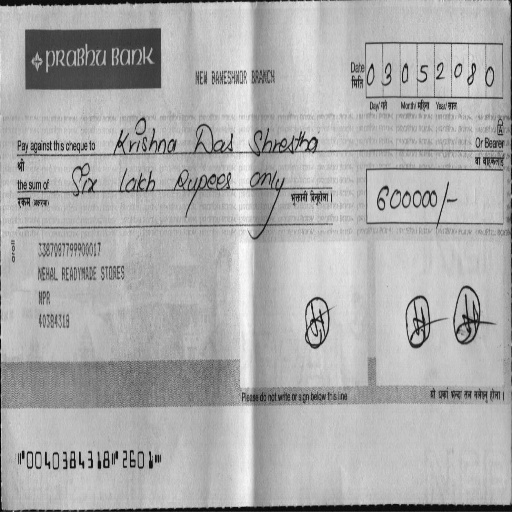 PRABHU BANK
NEW BANESHWOR BRANCH
Date 0 3 0 5 2 0 8 0
मिति
Day/ गते Month/ महिना Year/ साल
Pay against this cheque to Krishna Das Shrestha Or Bearer
श्री वा वाहकलाई
the sum of Six lakh Rupees only 600000/-
रकम (अक्षरमा) भुक्तानी दिनुहोला।
3387087799900017
NEHAL READYMADE STORES
NPR
40384318
Please do not write or sign below this line
⑈0040384318⑈2601⑈